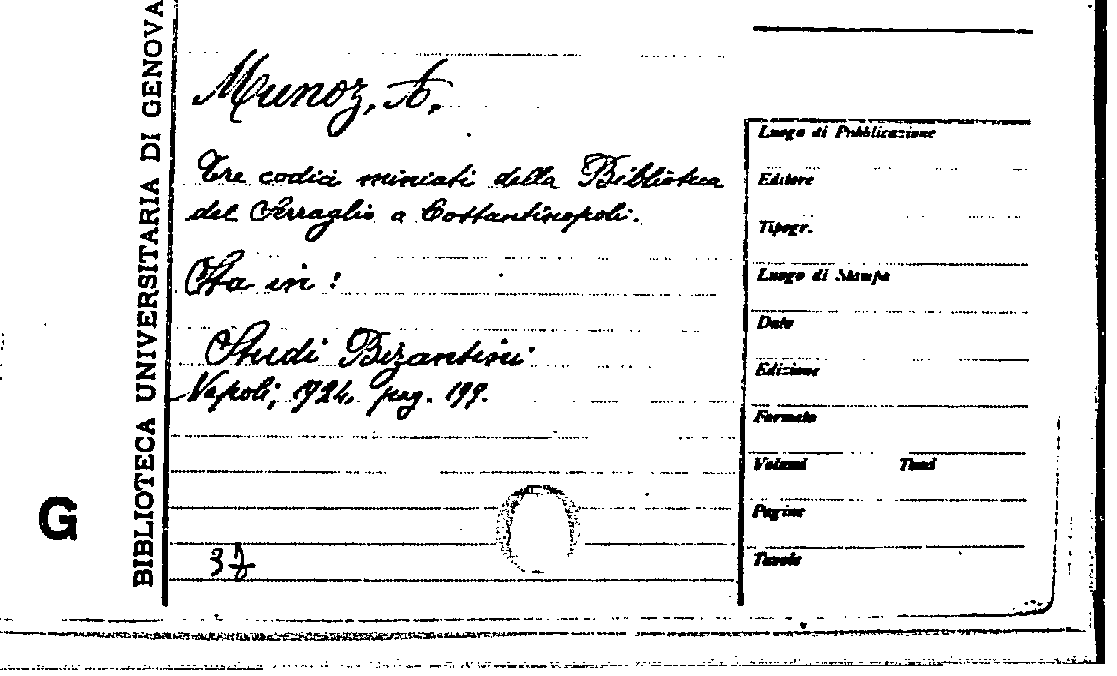 BIBLIOTECA UNIVERSITARIA DI GENOVA
G
Munoz, A.
Tre codici miniati della Biblioteca
del Serraglio a Costantinopoli.
Sta in :
Studi Bizantini
Napoli, 1924. pag. 199.
Luogo di Pubblicazione
Editore
Tipogr.
Luogo di Stampa
Data
Edizione
Formato
Volumi
Pagine
Tavole